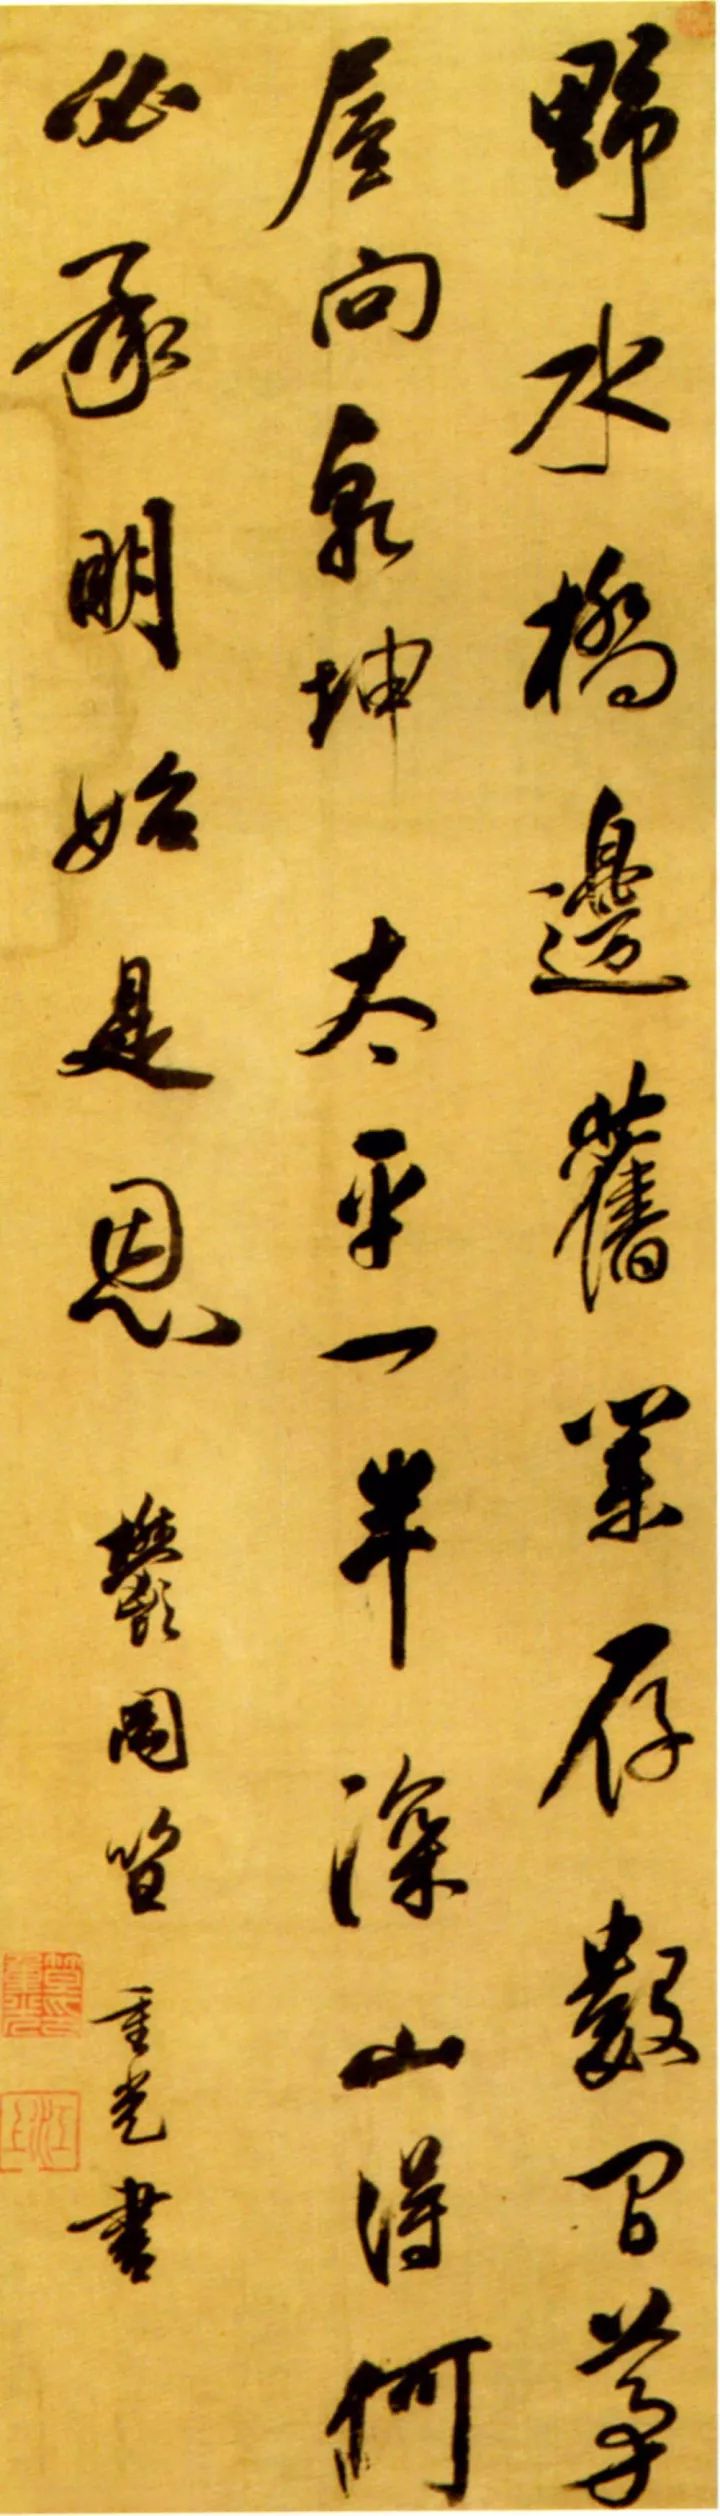 野水橋邊舊業存數間茅
屋向乾坤太平一半深山得何
必承明始是恩 鬱岡笪重光書
江上